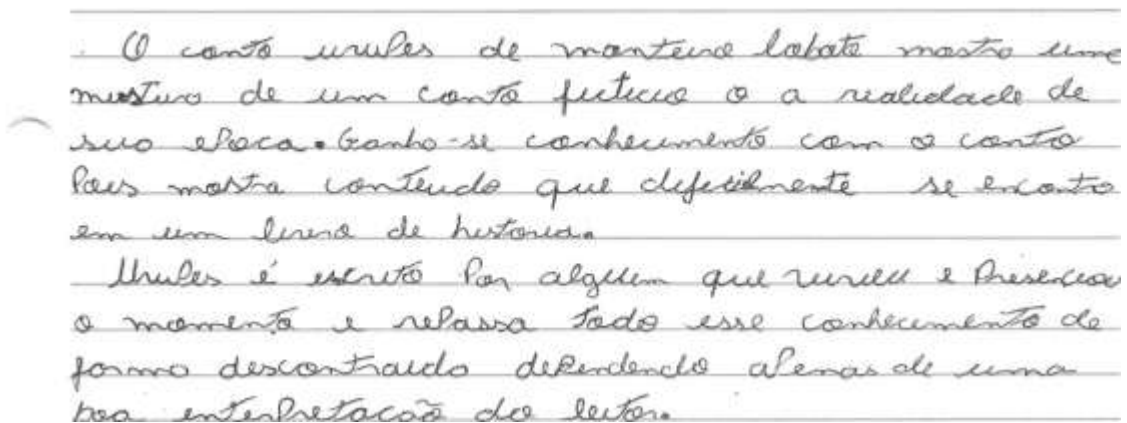 O conto urupês de monteiro lobato mostra uma
mistura de um conto fictício e a realidade de
sua epoca. Ganha-se conhecimento com o conto
Pois mostra conteudo que dificilmente se encontra
em um livro de historia.
Urupês é escrito Por alguem que viveu e Presenciou
o momento e rePassa todo esse conhecimento de
forma descontraida dePendendo aPenas de uma
boa interPretação do leitor.